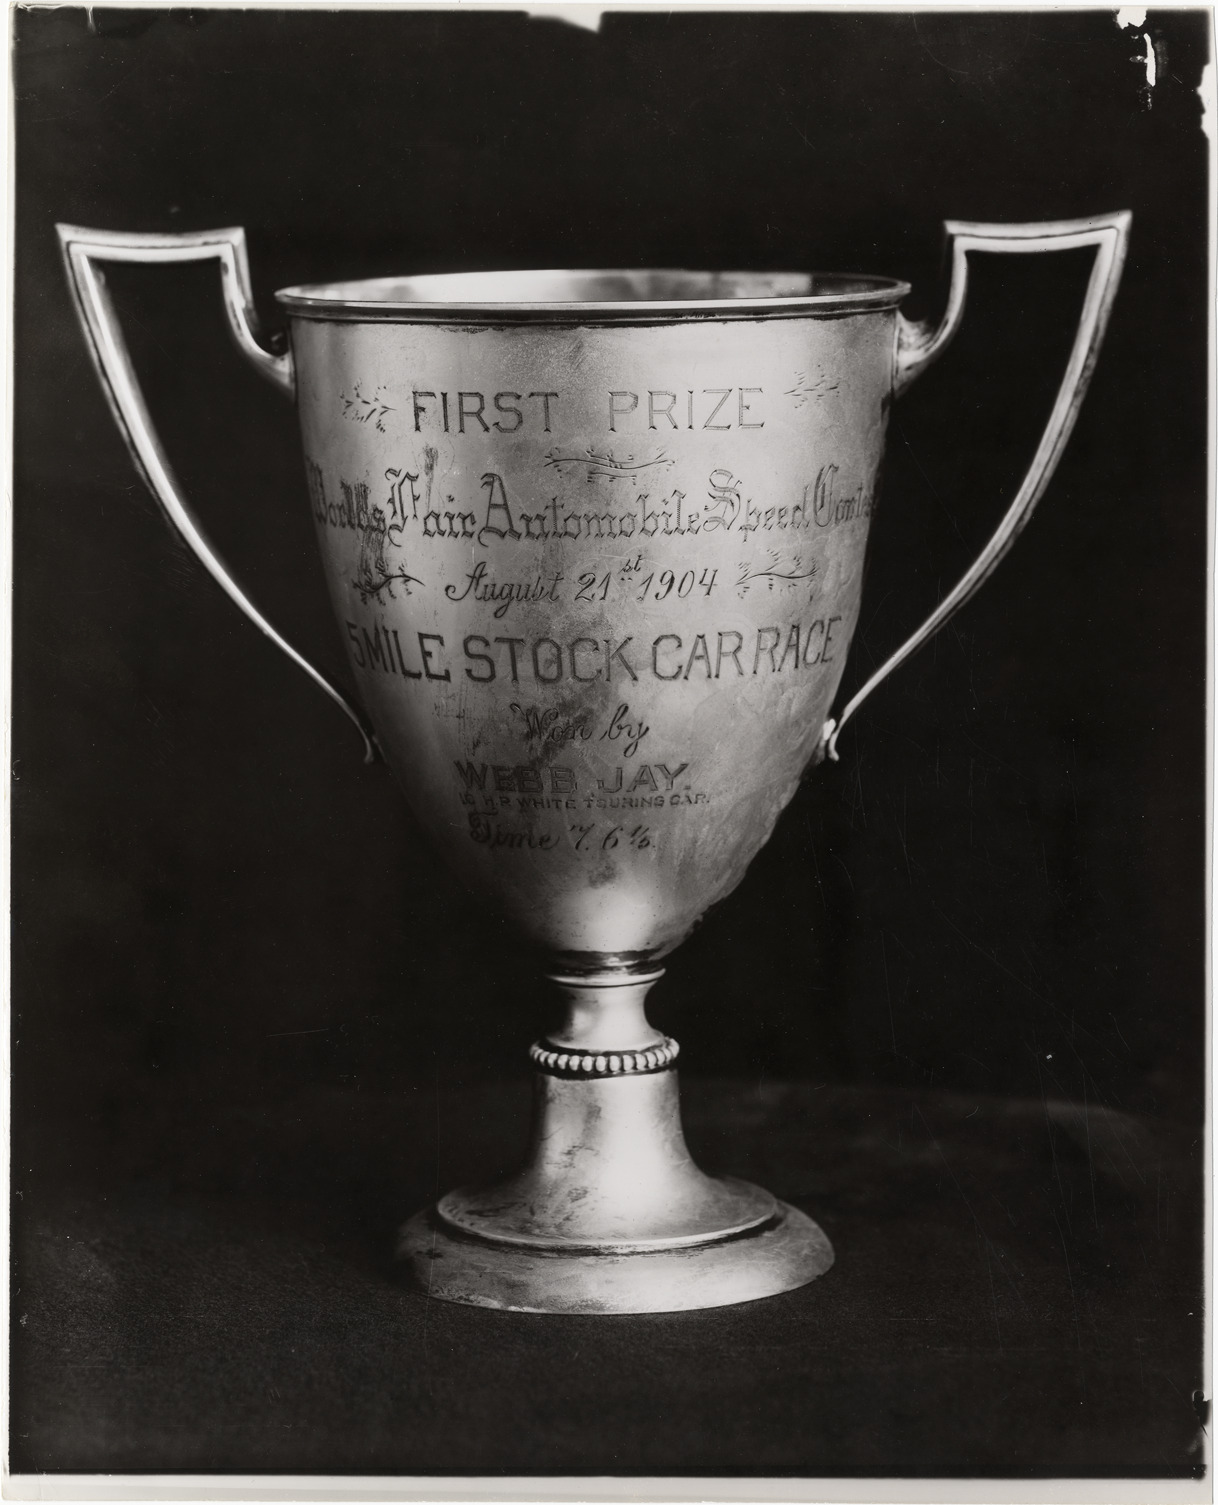 FIRST PRIZE
World's Fair Automobile Speed
August 21st 1904
5 MILE STOCK CAR RACE
Won by
WEBB JAY.
H.P. WHITE TOURING CAR.
Time 7. 6 1/5